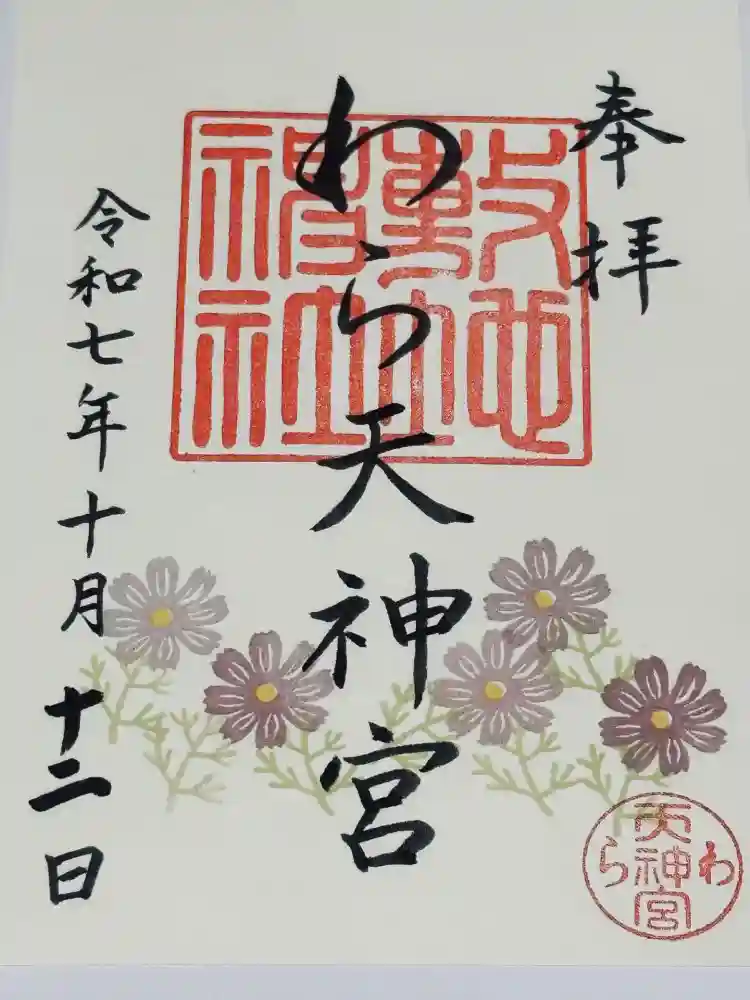 奉拝
敷地
神社
わら天神宮
令和七年十月十二日
わら天神宮